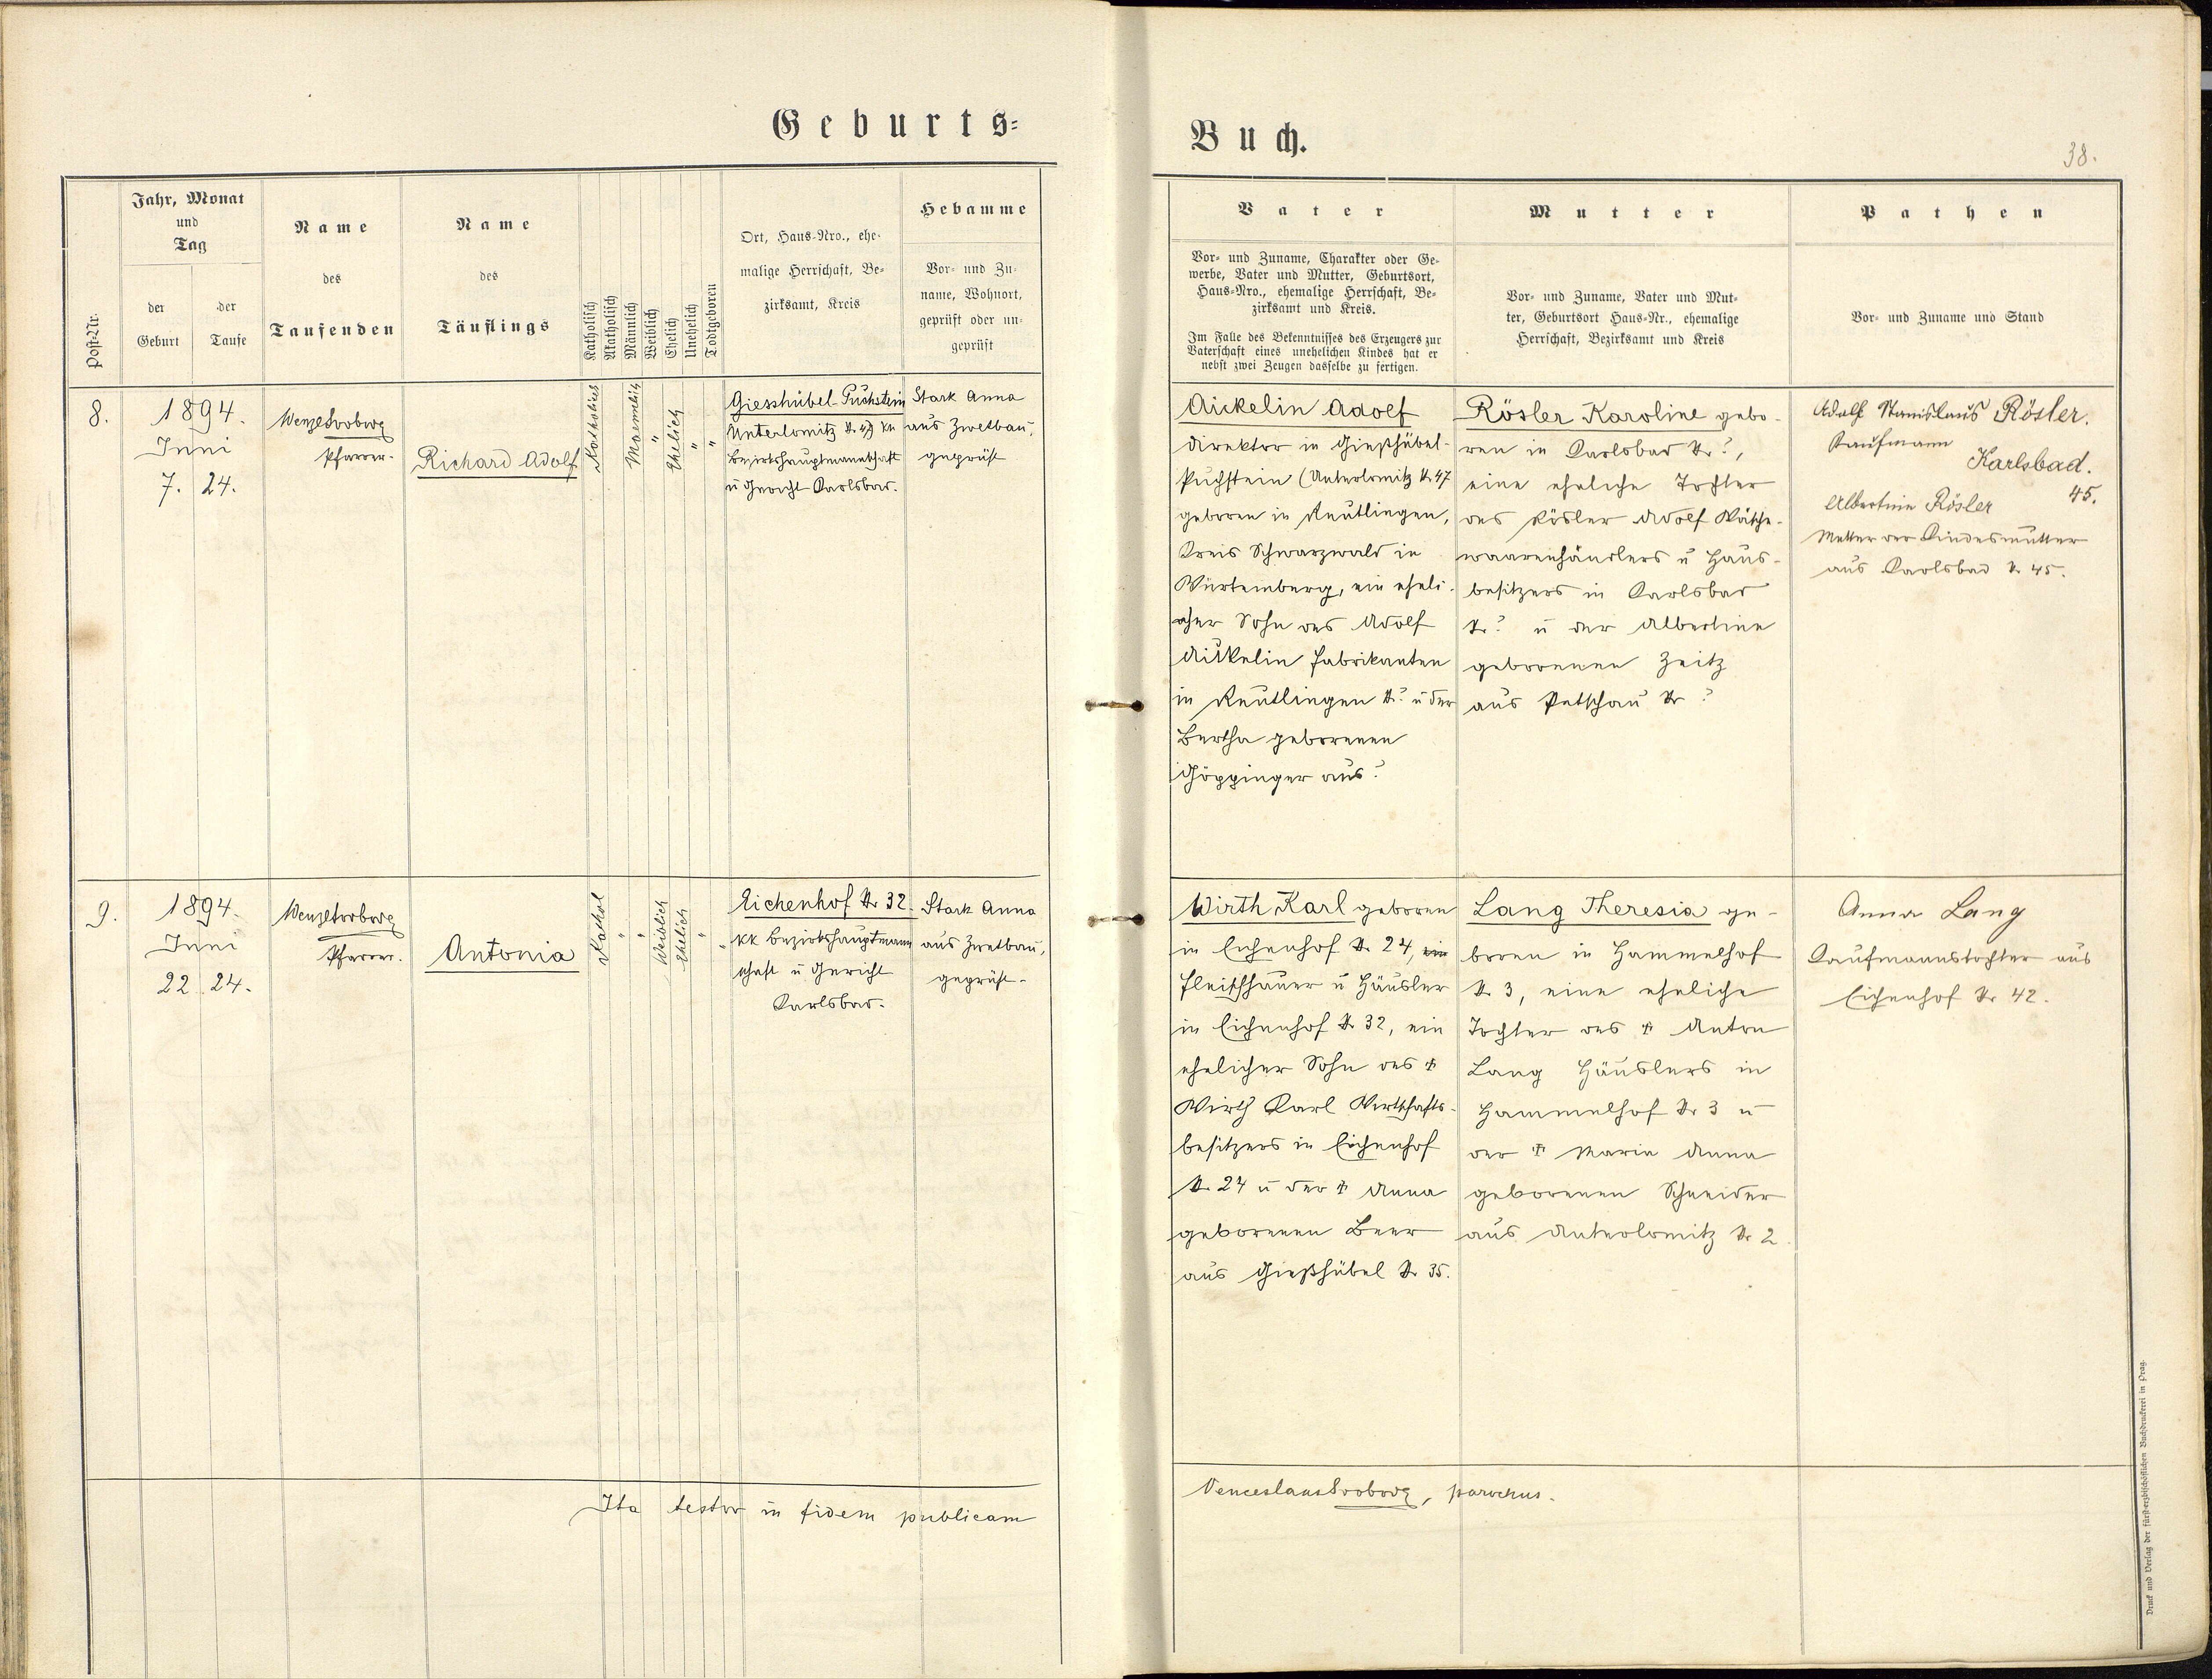 Geburts=
Buch.
38.
Post-Nr.
Jahr, Monat
und
Tag
der
Geburt
der
Taufe
Name
des
Taufenden
Name
des
Täuflings
Katholisch
Akatholisch
Männlich
Weiblich
Ehelich
Unehelich
Todtgeboren
Ort, Haus-Nro., ehe-
malige Herrschaft, Be-
zirksamt, Kreis
Hebamme
Vor- und Zu-
name, Wohnort,
geprüft oder un-
geprüft
Vater
Vor- und Zuname, Charakter oder Ge-
werbe, Vater und Mutter, Geburtsort,
Haus-Nro., ehemalige Herrschaft, Be-
zirksamt und Kreis.
Im Falle des Bekenntnisses des Erzeugers zur
Vaterschaft eines unehelichen Kindes hat er
nebst zwei Zeugen dasselbe zu fertigen.
Mutter
Vor- und Zuname, Vater und Mut-
ter, Geburtsort Haus-Nr., ehemalige
Herrschaft, Bezirksamt und Kreis
Pathen
Vor- und Zuname und Stand
8.
1894.
Juni
7. 24.
Wenzl Svoboda
Pfarrer.
Richard Adolf
Katholisch
Maennlich
"
Ehelich
"
"
Giesshübel-Puchstein
Unterlomitz N. 47 kk
Bezirkshauptmannschaft
u Gericht Karlsbad.
Stark Anna
aus Zwetbau,
geprüft
Aickelin Adolf
Direktor in Gießhübel-
Puchstein (Unterlomitz N. 47
geboren in Reutlingen,
Kreis Schwarzwald in
Würtemberg, ein eheli-
cher Sohn des Adolf
Aickelin Fabrikanten
in Reutlingen N.? u der
Bertha geborenen
Göppinger aus?
Rösler Karoline gebo-
ren in Karlsbad Nr?,
eine eheliche Tochter
des Rösler Adolf Wäsche-
waarenhändlers u Haus-
besitzers in Karlsbad
Nr? u der Albertine
geborenen Zeitz
aus Petschau Nr ?
Adolf Stanislaus Rösler.
Kaufmann
Karlsbad.
45.
Albertine Rösler
Mutter der Kindesmutter
aus Karlsbad N. 45.
9.
1894.
Juni
22. 24.
Wenzl Svoboda
Pfarrer.
Antonia
Kathol
"
"
Weiblich
Ehelich
"
"
Eichenhof Nr 32.
kk Bezirkshauptmann
schaft u Gericht
Karlsbad.
Stark Anna
aus Zwetbau,
geprüft.
Wirth Karl geboren
in Eichenhof N. 24, ein
Fleischhauer u Häusler
in Eichenhof N. 32, ein
ehelicher Sohn des †
Wirth Karl Wirtschafts-
besitzers in Eichenhof
N. 24 u der † Anna
geborenen Beer
aus Gießhübel Nr 35.
Lang Theresia ge-
boren in Hammelhof
N. 3, eine eheliche
Tochter des † Anton
Lang Häuslers in
Hammelhof Nr 3 u
der † Maria Anna
geborenen Schneider
aus Unterlomitz Nr 2.
Anna Lang
Kaufmannstochter aus
Eichenhof Nr 42.
Ita testor in fidem publicam
Venceslaus Svoboda, parochus.
Druck und Verlag der fürsterzbischöflichen Buchdruckerei in Prag.